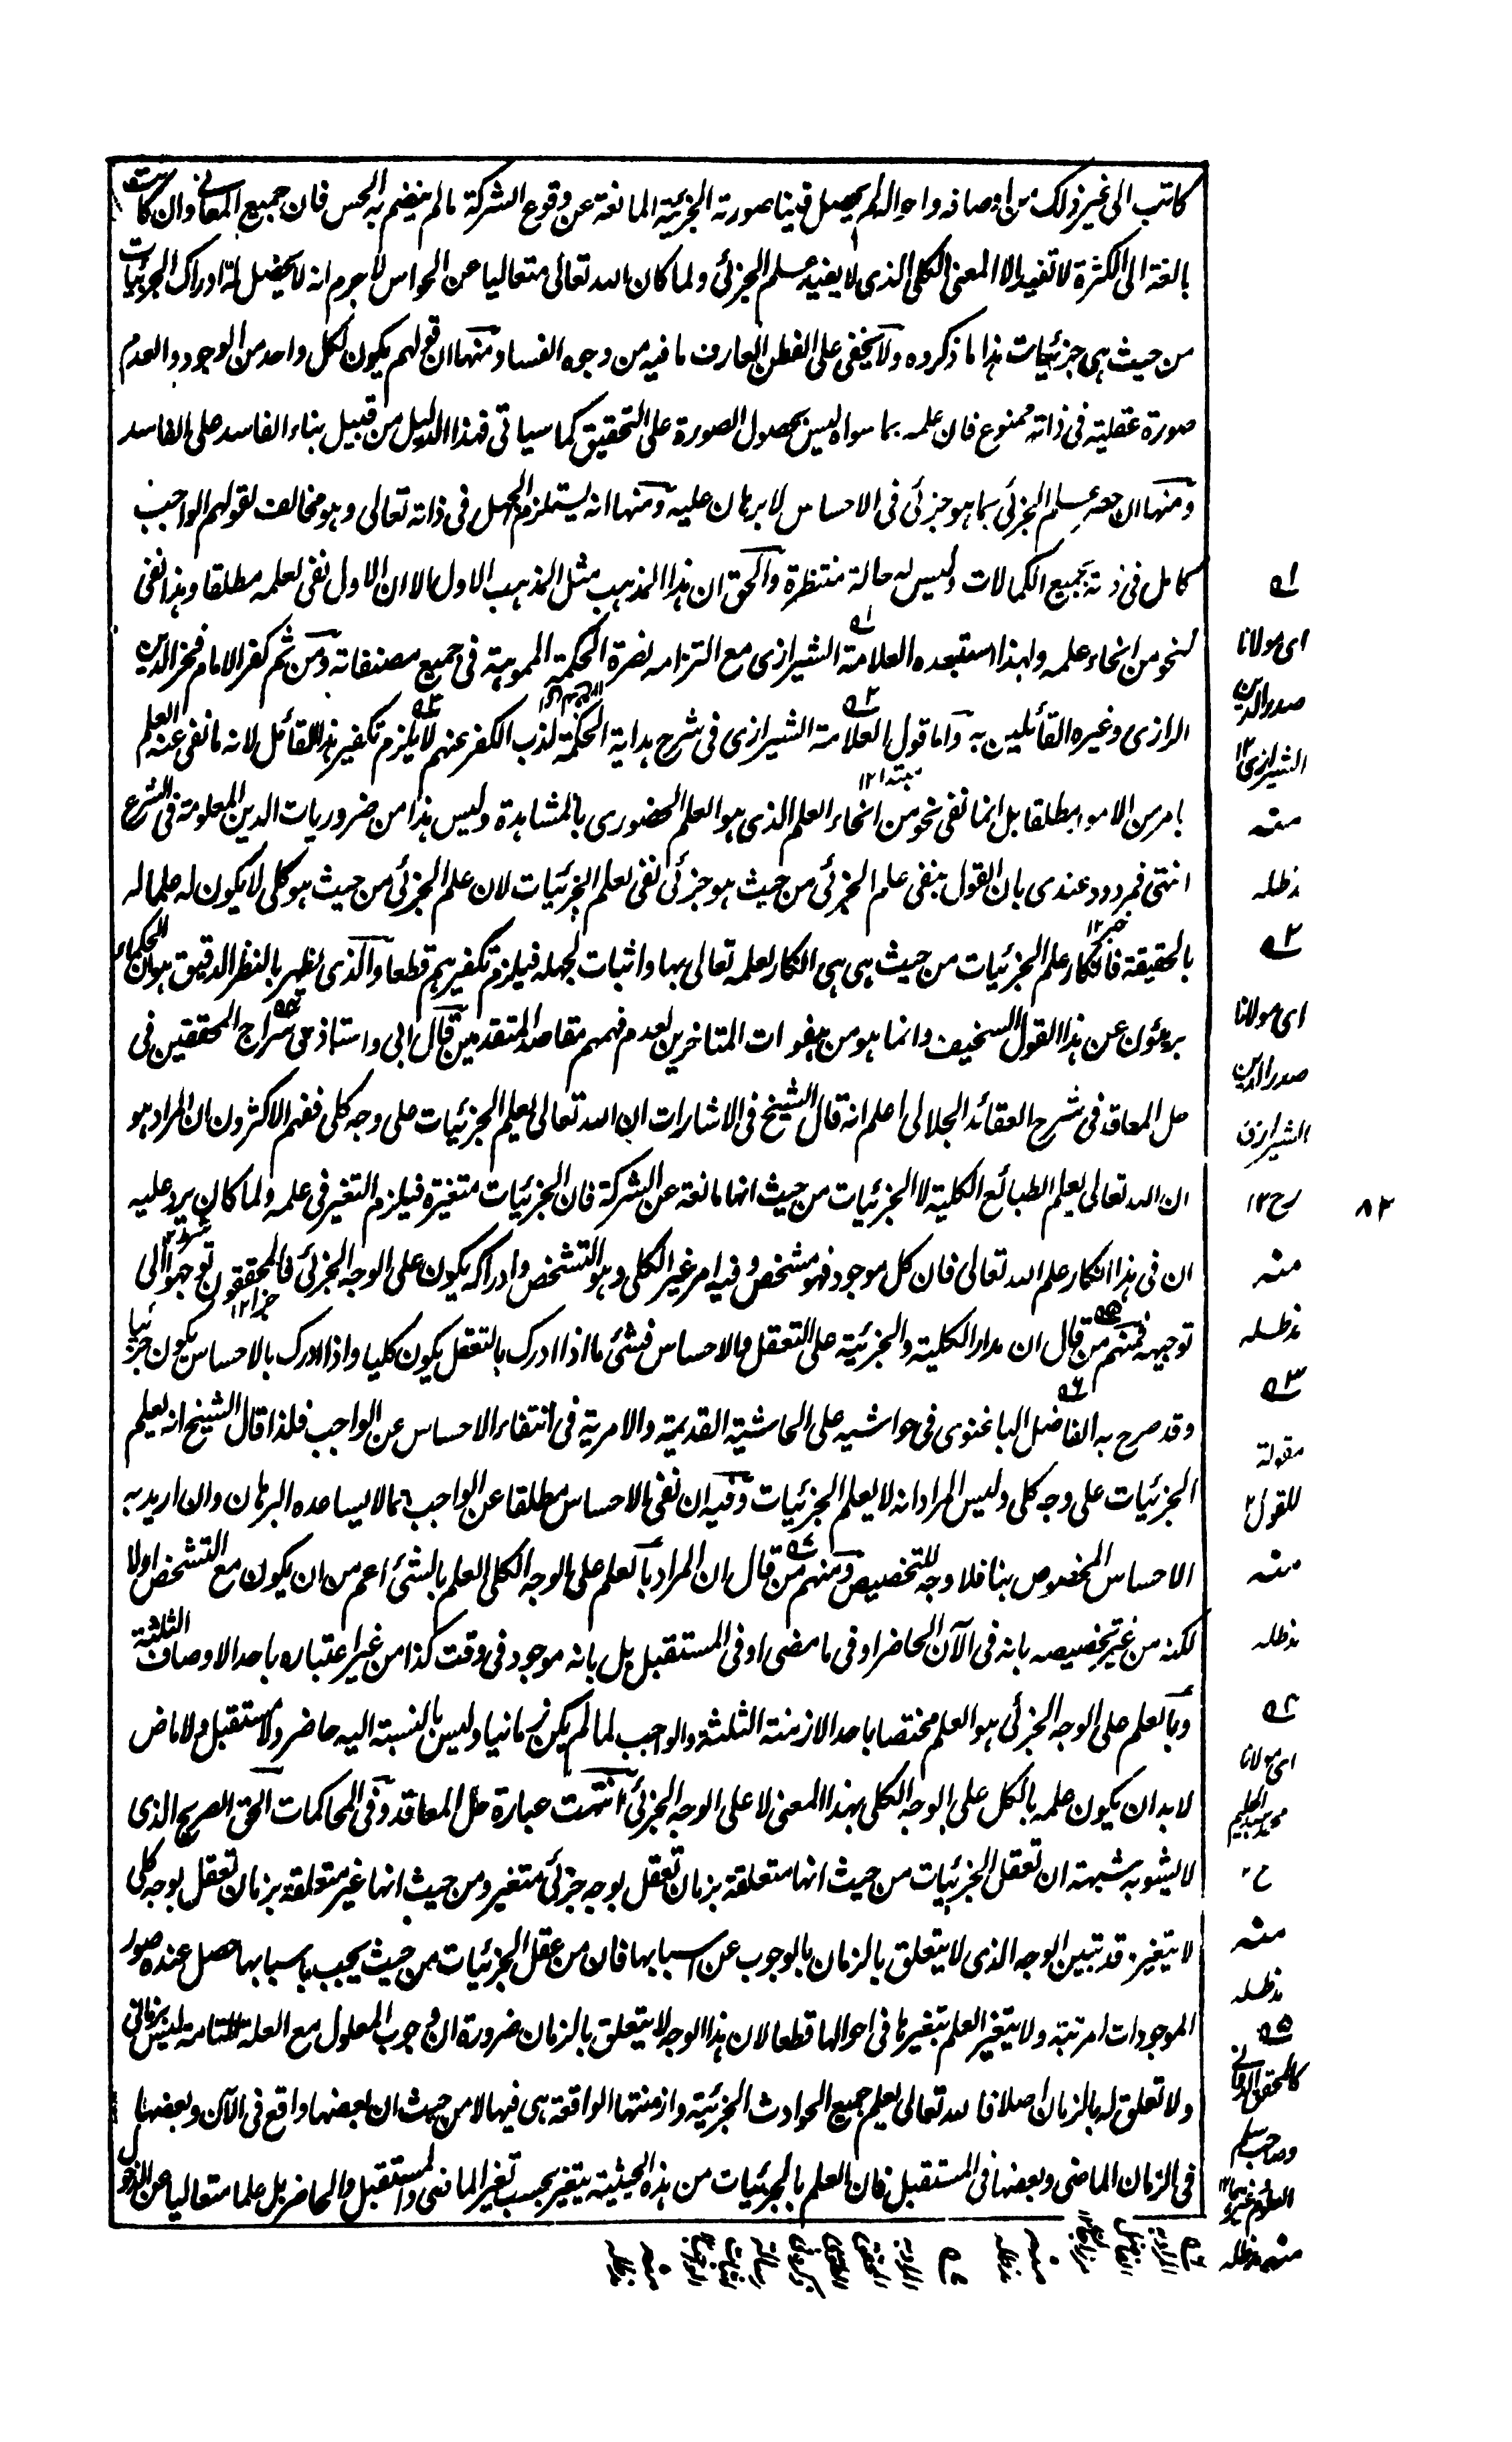 كاتب الى غير ذلك من اوصافه واحواله لم يحصل فينا صورته الجزئية المانعة عن وقوع الشركة مالم ينضم به الحس فان جميع المعانى وان كانت
بالغة الى الكثرة لا تفيد الا المعنى الكلى الذى لا يفيد علم الجزئى ولما كان الله تعالى متعاليا عن الحواس لا جرم انه لا يحصل له ادراك الجزئيات
من حيث هى جزئيات هذا ما ذكروه ولا يخفى على الفطن العارف ما فيه من وجوه الفساد ومنها ان قولهم يكون لكل واحد من الوجود والعدم
صورة عقلية فى ذاته ممنوع فان علمه بما سواه ليس بحصول الصورة على التحقيق كما سياتى فهذا الدليل من قبيل بناء الفاسد على الفاسد
ومنها ان حصر علم الجزئى بما هو جزئى فى الاحساس لا برهان عليه ومنها انه يستلزم الجهل فى ذاته تعالى وهو مخالف لقولهم الواجب
كامل فى ذاته بجميع الكمالات وليس له حالة منتظرة والحق ان هذا المذهب مثل المذهب الاول الا ان الاول نفى لعلمه مطلقا وهذا نفى
لنحو من انحاء علمه ولهذا استبعده العلامة الشيرازى مع التزامه نصرة الحكمة المموهة فى جميع مصنفاته ومن ثم كفر الامام فخر الدين
الرازى وغيره القائلين به واما قول العلامة الشيرازى فى شرح هداية الحكمة لذب الكفر عنهم لا يلزم تكفير هذا القائل لانه ما نفى عنه العلم
بامر من الامور مطلقا بل انما نفى نحو من انحاء العلم الذى هو العلم الحضورى بالمشاهدة وليس هذا من ضروريات الدين المعلومة فى الشرع
انتهى فمردود عندى بان القول بنفى علم الجزئى من حيث هو جزئى نفى لعلم الجزئيات لان علم الجزئى من حيث هو كلى لا يكون له علما له
بالحقيقة فانكار علم الجزئيات من حيث هى هى انكار لعلمه تعالى بها واثبات لجهله فيلزم تكفيرهم قطعا والذى يظهر بالنظر الدقيق هو ان الحكماء
بريئون عن هذا القول السخيف وانما هو من هفوات المتاخرين لعدم فهمهم مقاصد المتقدمين قال ابى واستاذى سراج المحققين فى
حل المعاقد فى شرح العقائد الجلالى اعلم انه قال الشيخ فى الاشارات ان الله تعالى يعلم الجزئيات على وجه كلى ففهم الاكثرون ان المراد هو
ان الله تعالى يعلم الطبائع الكلية لا الجزئيات من حيث انها مانعة عن الشركة فان الجزئيات متغيرة فيلزم التغير فى علمه ولما كان يرد عليه
ان فى هذا انكار علم الله تعالى فان كل موجود فهو مشخص وفيه امر غير الكلى وهو التشخص وادراكه يكون على الوجه الجزئى فالمحققون توجهوا الى
توجيهه فمنهم من قال ان مدار الكلية والجزئية على التعقل والاحساس فشئى ما اذا ادرك بالتعقل يكون كليا واذا ادرك بالاحساس يكون جزئيا
وقد صرح به الفاضل الباغنوى فى حواشيه على الحاشية القديمة والامرية فى انتفاء الاحساس عن الواجب فلذا قال الشيخ انه يعلم
الجزئيات على وجه كلى وليس المراد انه لا يعلم الجزئيات وفيه ان نفى الاحساس مطلقا عن الواجب مما لا يساعده البرهان وان اريد به
الاحساس المخصوص بنا فلا وجه للتخصيص ومنهم من قال ان المراد بالعلم على الوجه الكلى العلم بالشئ اعم من ان يكون مع التشخص اولا
لكنه من غير تخصيصه بانه فى الآن الحاضر او فى ما مضى او فى المستقبل بل بانه موجود فى وقت كذا من غير اعتباره باحد الاوصاف الثلثة
وبالعلم على الوجه الجزئى هو العلم مختصا باحد الازمنة الثلثة والواجب لما لم يكن زمانيا وليس بالنسبة اليه حاضر ولا مستقبل ولا ماض
لا بد ان يكون علمه بالكل على الوجه الكلى بهذا المعنى لا على الوجه الجزئى انتهت عبارة حل المعاقد وفى المحاكمات الحق الصريح الذى
لا يشوبه شبهة ان تعقل الجزئيات من حيث انها متعلقة بزمان تعقل بوجه جزئى متغير ومن حيث انها غير متعلقة بزمان تعقل بوجه كلى
لا يتغير قد تبين الوجه الذى لا يتعلق بالزمان بالوجوب عن اسبابها فان من عقل الجزئيات من حيث يجب باسبابها حصل عنده صور
الموجودات مرتبة ولا يتغير العلم بتغيرها فى احوالها قطعا لان هذا الوجه لا يتعلق بالزمان ضرورة ان وجوب المعلول مع العلة التامة ليس بزمانى
ولا تعلق له بالزمان اصلا فالله تعالى يعلم جميع الحوادث الجزئية وازمنتها الواقعة هى فيها لا من حيث ان بعضها واقع فى الآن وبعضها
فى الزمان الماضى وبعضها فى المستقبل فان العلم بالجزئيات من هذه الحيثية يتغير بحسب تغير الماضى والمستقبل والحاضر بل علما متعاليا عن الدخول
ا ه
اى مولانا
صدر الدين
الشيرازى ١٢
منه
مدظله
٢ ه
اى مولانا
صدر الدين
الشيرازى
رح ١٢
منه
مدظله
٣ ه
مقولة
للقول ٢
منه
مدظله
٤ ه
اى مولانا
محمد عبد الحليم
رح
منه
مدظله
٥ ه
كالمحقق الدوانى
وصاحب سلم
العلوم وغيرهما ١٢
منه مدظله
٨٢